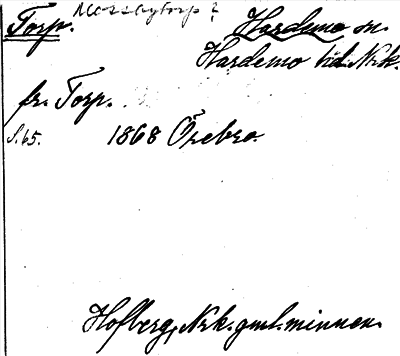 Torp. Mossbytorp? Hardemo sn.
Hardemo tid. Nrk.
fr. Torp.
S. 65. 1868 Örebro.
Hofberg, Nrk. gml. minnen.